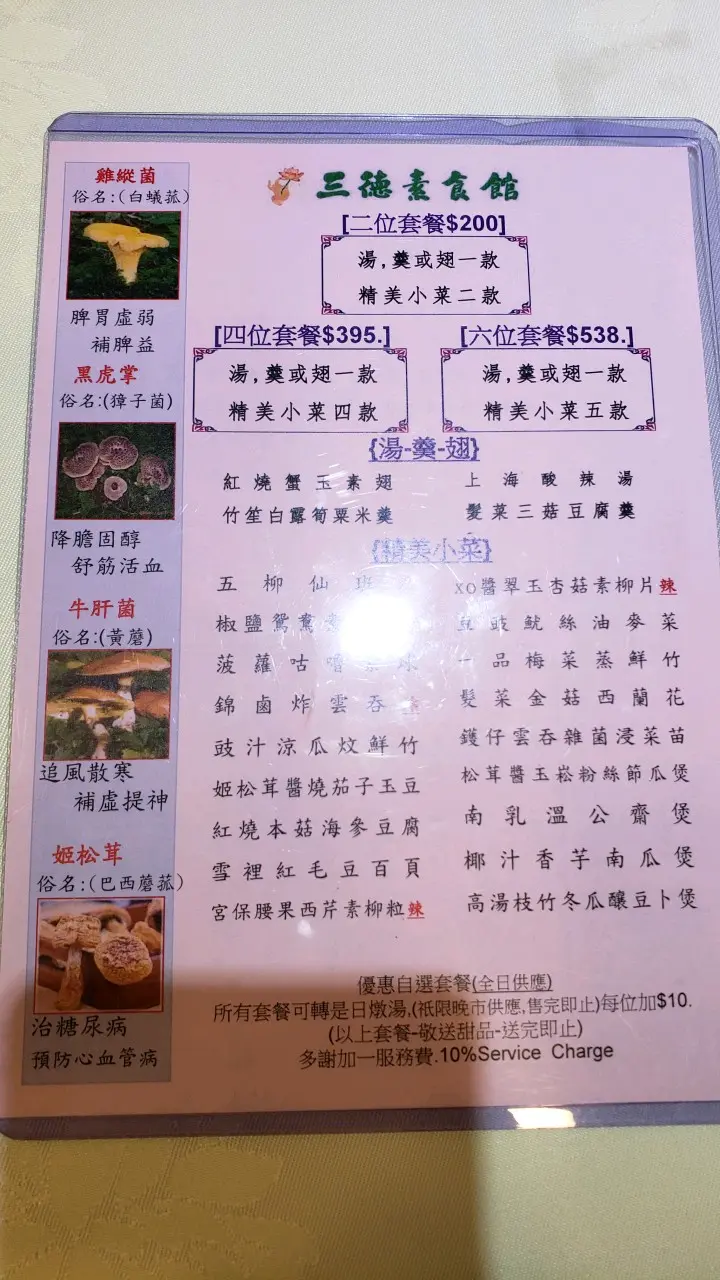 三德素食館
[二位套餐$200]
湯,羹或翅一款
精美小菜二款
[四位套餐$395.]
湯,羹或翅一款
精美小菜四款
[六位套餐$538.]
湯,羹或翅一款
精美小菜五款
{湯-羹-翅}
紅燒蟹玉素翅
上海酸辣湯
竹笙白露筍粟米羹
髮菜三菇豆腐羹
{精美小菜}
五柳仙班
xo醬翠玉杏菇素柳片辣
椒鹽鴛鴦
豆豉魷絲油麥菜
菠蘿咕嚕
一品梅菜蒸鮮竹
錦鹵炸雲吞
髮菜金菇西蘭花
豉汁涼瓜炆鮮竹
鑊仔雲吞雜菌浸菜苗
姬松茸醬燒茄子玉豆
松茸醬玉崧粉絲節瓜煲
紅燒本菇海參豆腐
南乳溫公齋煲
雪裡紅毛豆百頁
椰汁香芋南瓜煲
宮保腰果西芹素柳粒辣
高湯枝竹冬瓜釀豆卜煲
優惠自選套餐(全日供應)
所有套餐可轉是日燉湯,(祇限晚市供應,售完即止)每位加$10.
(以上套餐-敬送甜品-送完即止)
多謝加一服務費.10%Service Charge
雞縱菌
俗名:(白蟻菰)
脾胃虛弱
補脾益
黑虎掌
俗名:(獐子菌)
降膽固醇
舒筋活血
牛肝菌
俗名:(黃蘑)
追風散寒
補虛提神
姬松茸
俗名:(巴西蘑菰)
治糖尿病
預防心血管病